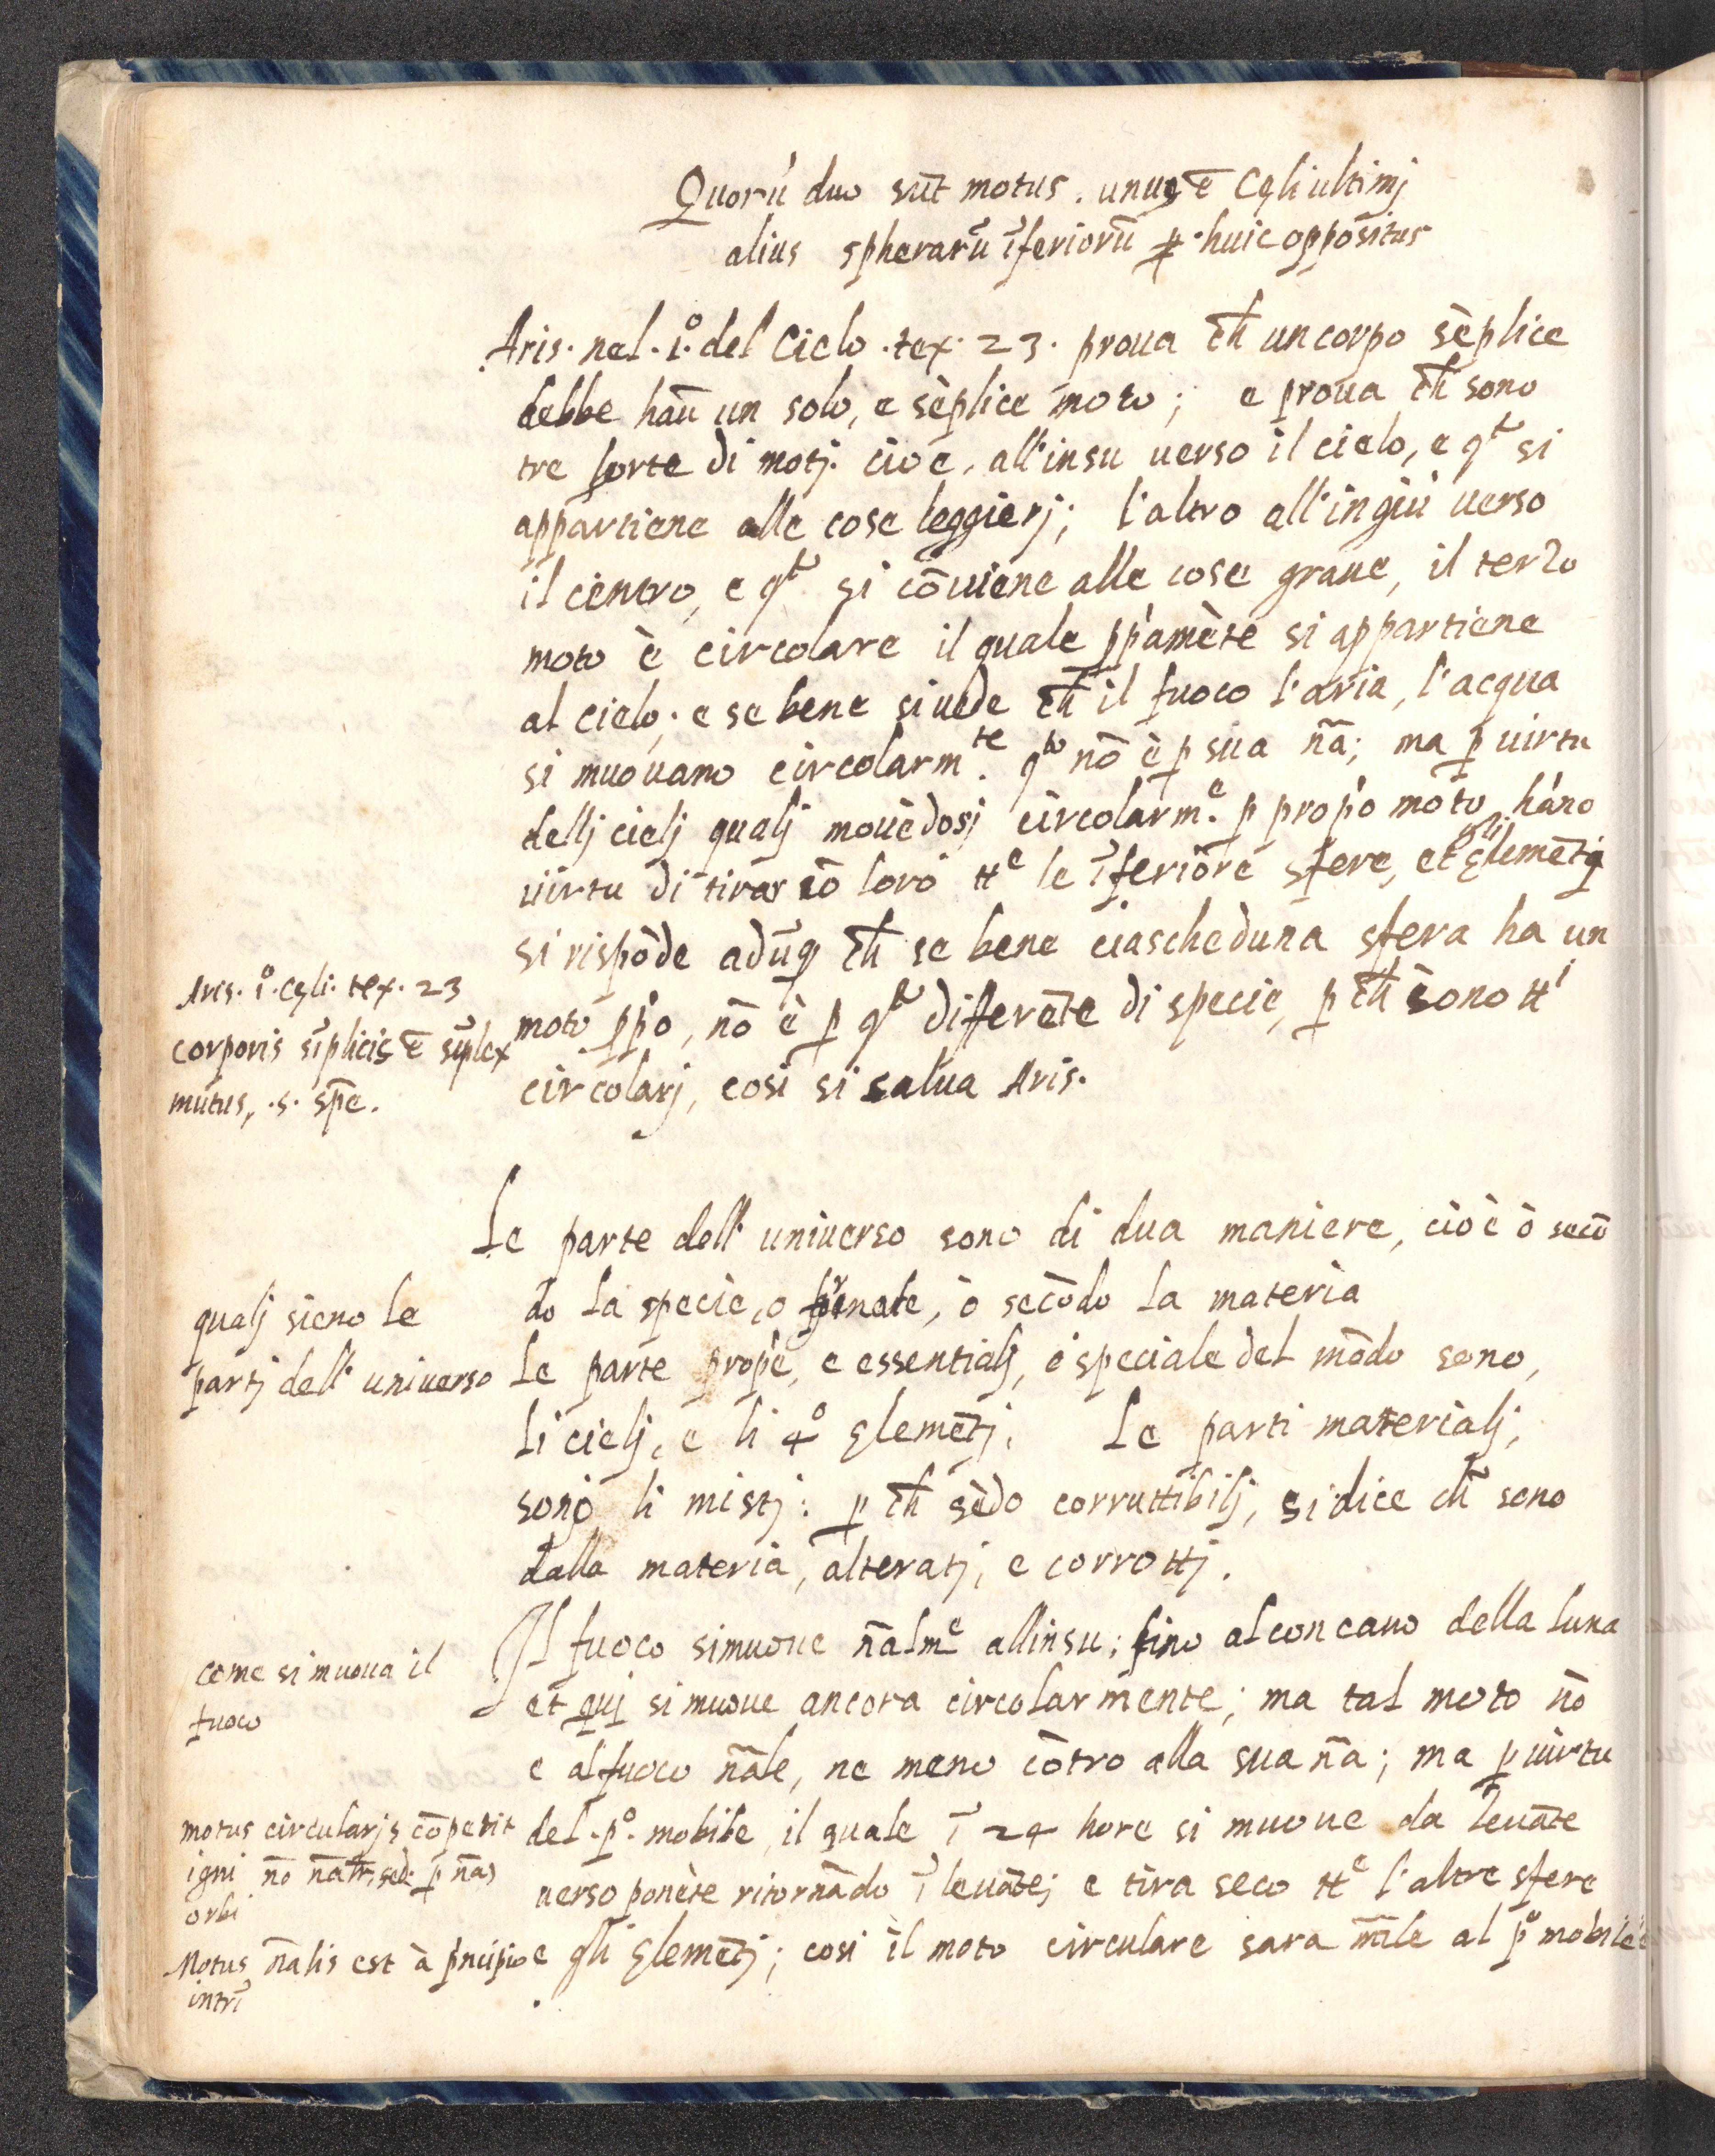 Quorũ duo sũt motus. unus ẽ Cęli ultimj
alius spherarũ ĩferiorũ p̱ huic oppositus
Aris. nel. i.º del Cielo. tex. 23. proua ch̃ un corpo sẽplice
debbe hau̅ un solo, e sẽplice moto; e proua ch̃ sono
tre sorte di motj. cioè, all'insu uerso il cielo, e q̃to si
appartiene alle cose leggierj; l'altro all'ingiù uerso
il centro, e q̃to si cõuiene alle cose graue, il terzo
moto è circolare il quale ꝓp'amẽte si appartiene
al cielo; e se bene si uede ch̃ il fuoco l'aria, l'acqua
si muouano circolarm.te q.to nõ è ꝑ sua ña; ma ꝑ uirtu
dellj cielj qualj mouẽdosj circolarm.e ꝑ prop'o moto hãno
uirtu di tirar cõ loro tt.e le ĩferiore sfere, et gli Elemẽtj
si rispõde adũq ch̃ se bene ciascheduna sfera ha un
Aris. i.º cęli. tex. 23
corporis sĩplicis ẽ sĩplex
mũtus, .s. spẽ.
moto ꝓp'o, nõ è ꝑ q.to differẽte di specie, ꝑ ch̃ sono tt.i
circolarj, cosi si salua Aris.
Le parte dell' uniuerso sono di dua maniere, cioè ò secõ
qualj sieno le
partj dell' uniuerso
do la specie, o formale, ò secõdo la materia
Le parte prop'e, e essentialj, ò speciale del mõdo sono,
li cielj, e li 4.º Elemẽtj. Le parti materialj,
sono li mistj: ꝑ ch̃ sẽdo corruttibilj, si dice ch̃ sono
dalla materia, alteratj, e corrottj.
come si muoua il
fuoco
Il fuoco si muoue ñalm.e allinsu; fino al concauo della luna
et quj si muoue ancora circolarmente; ma tal moto nõ
e al fuoco ñale, ne meno cõtro alla sua ña; ma ꝑ uirtu
motus circularjs cõpetit
igni nõ ñalr, sed. ꝑ ñas
orbi
del .p.º mobile, il quale ĩ 24 hore si muoue da leuãte
uerso ponẽte ritornãdo ĩ leuãte; e tira seco tt.e l'altre sfere
Motus ñalis est à p̃ncipio
intrĩ
e gli Elemẽtj; cosi il moto circulare sara ñale al p.º mobile